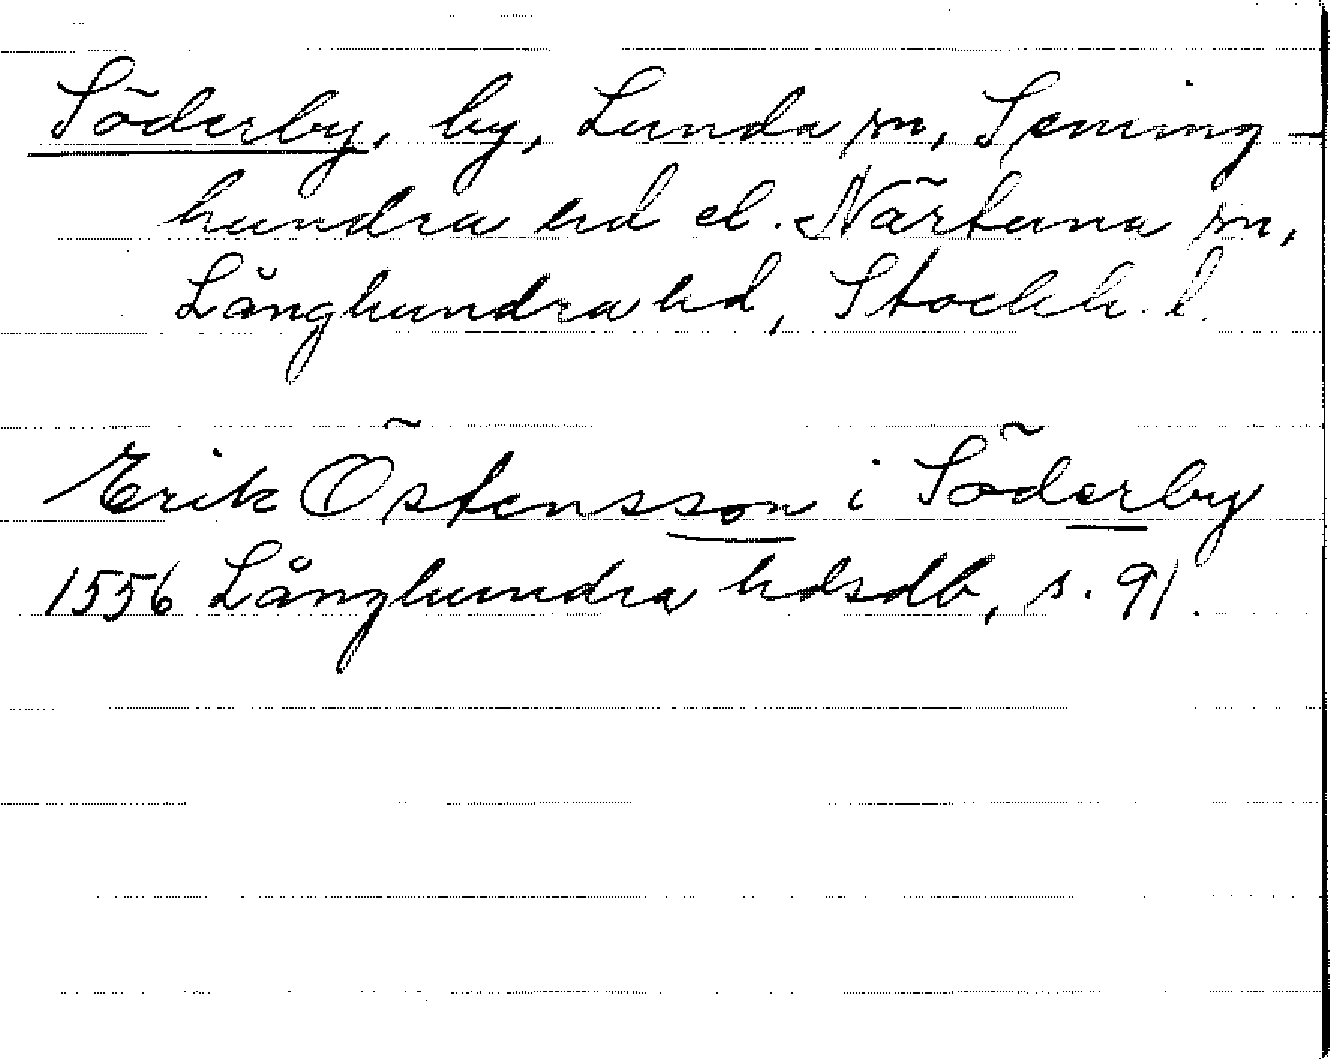 Söderby, by, Lunda sn, Seming-
hundra hd el. Närtuna sn,
Långhundra hd, Stockh. l.
Erik Östensson i Söderby
1556 Långhundra hdsdb, s. 91.